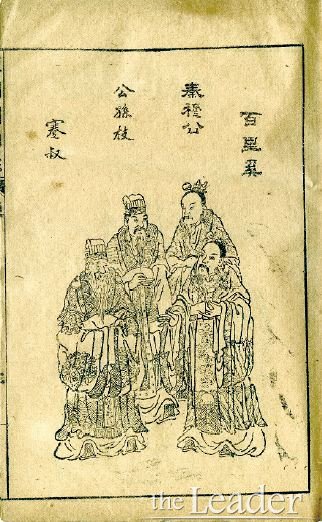 百里奚
秦穆公
公孫枝
蹇叔
the Leader